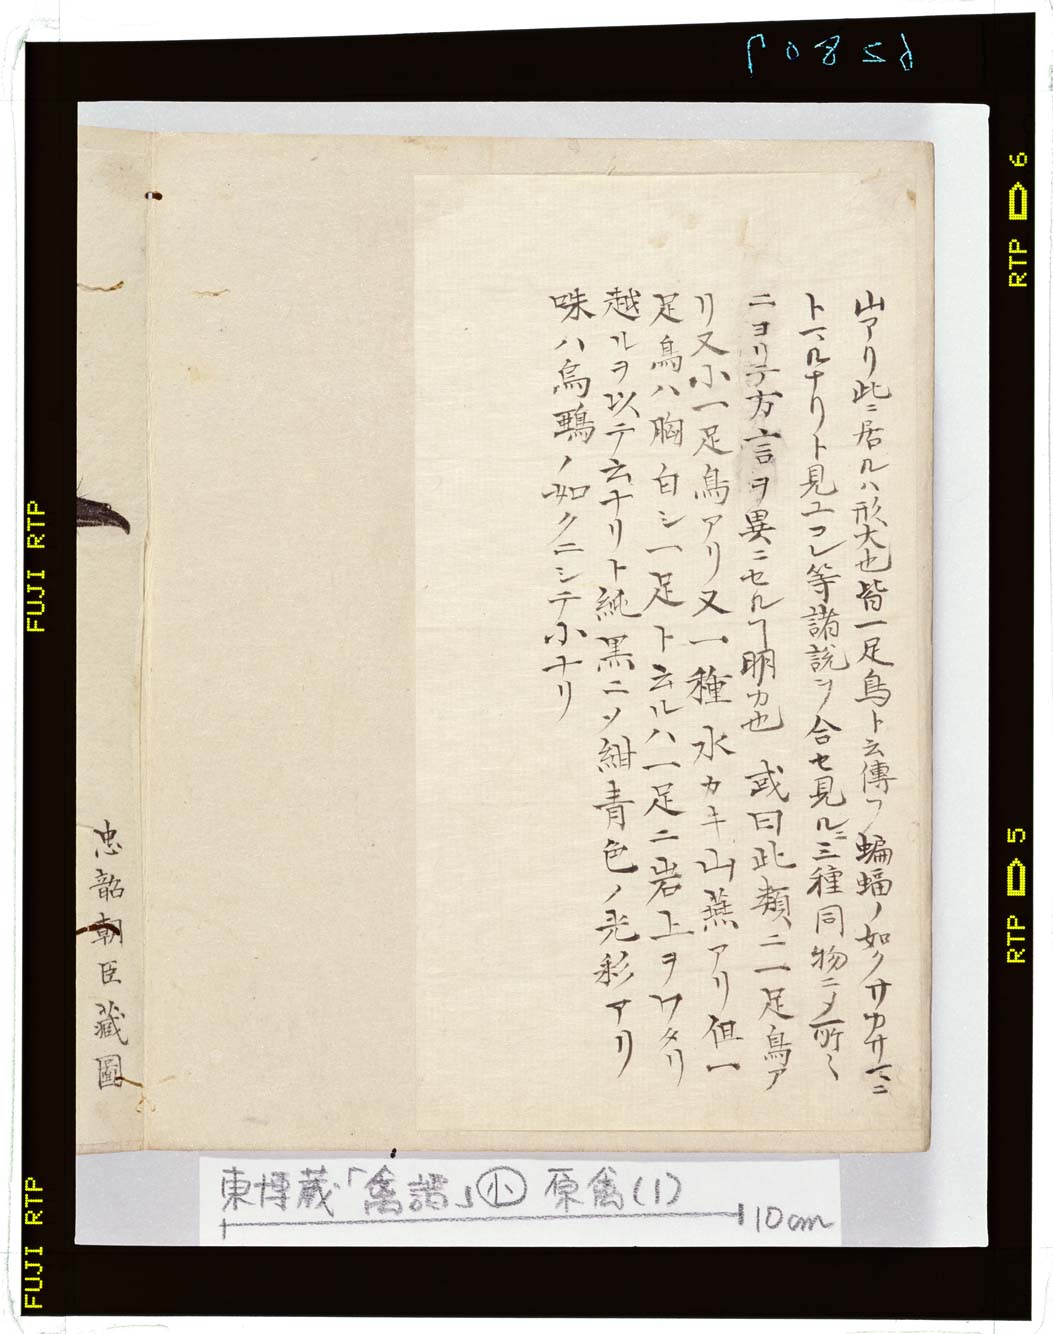 山アリ此ニ居ルハ形大也皆一足鳥ト云傳フ蝙蝠ノ如クサカサマニ
トマルナリト見ユコレ等諸説ヲ合セ見ルニ三種同物ニメ所〻
ニヨリテ方言ヲ異ニセルヿ明カ也 或曰此類ニ一足鳥ア
リ又小一足鳥アリ又一種水カキ山燕アリ但一
足鳥ハ胸白シ一足ト云ルハ一足ニ岩上ヲワタリ
越ルヲ以テ云ナリト純黒ニソ紺青色ノ光彩アリ
咮ハ烏鵶ノ如クニシテ小ナリ
忠韶朝臣蔵圖
東博蔵「禽譜」小 原禽(1)
10cm
FUJI RTP
FUJI RTP
RTP 6
RTP 5